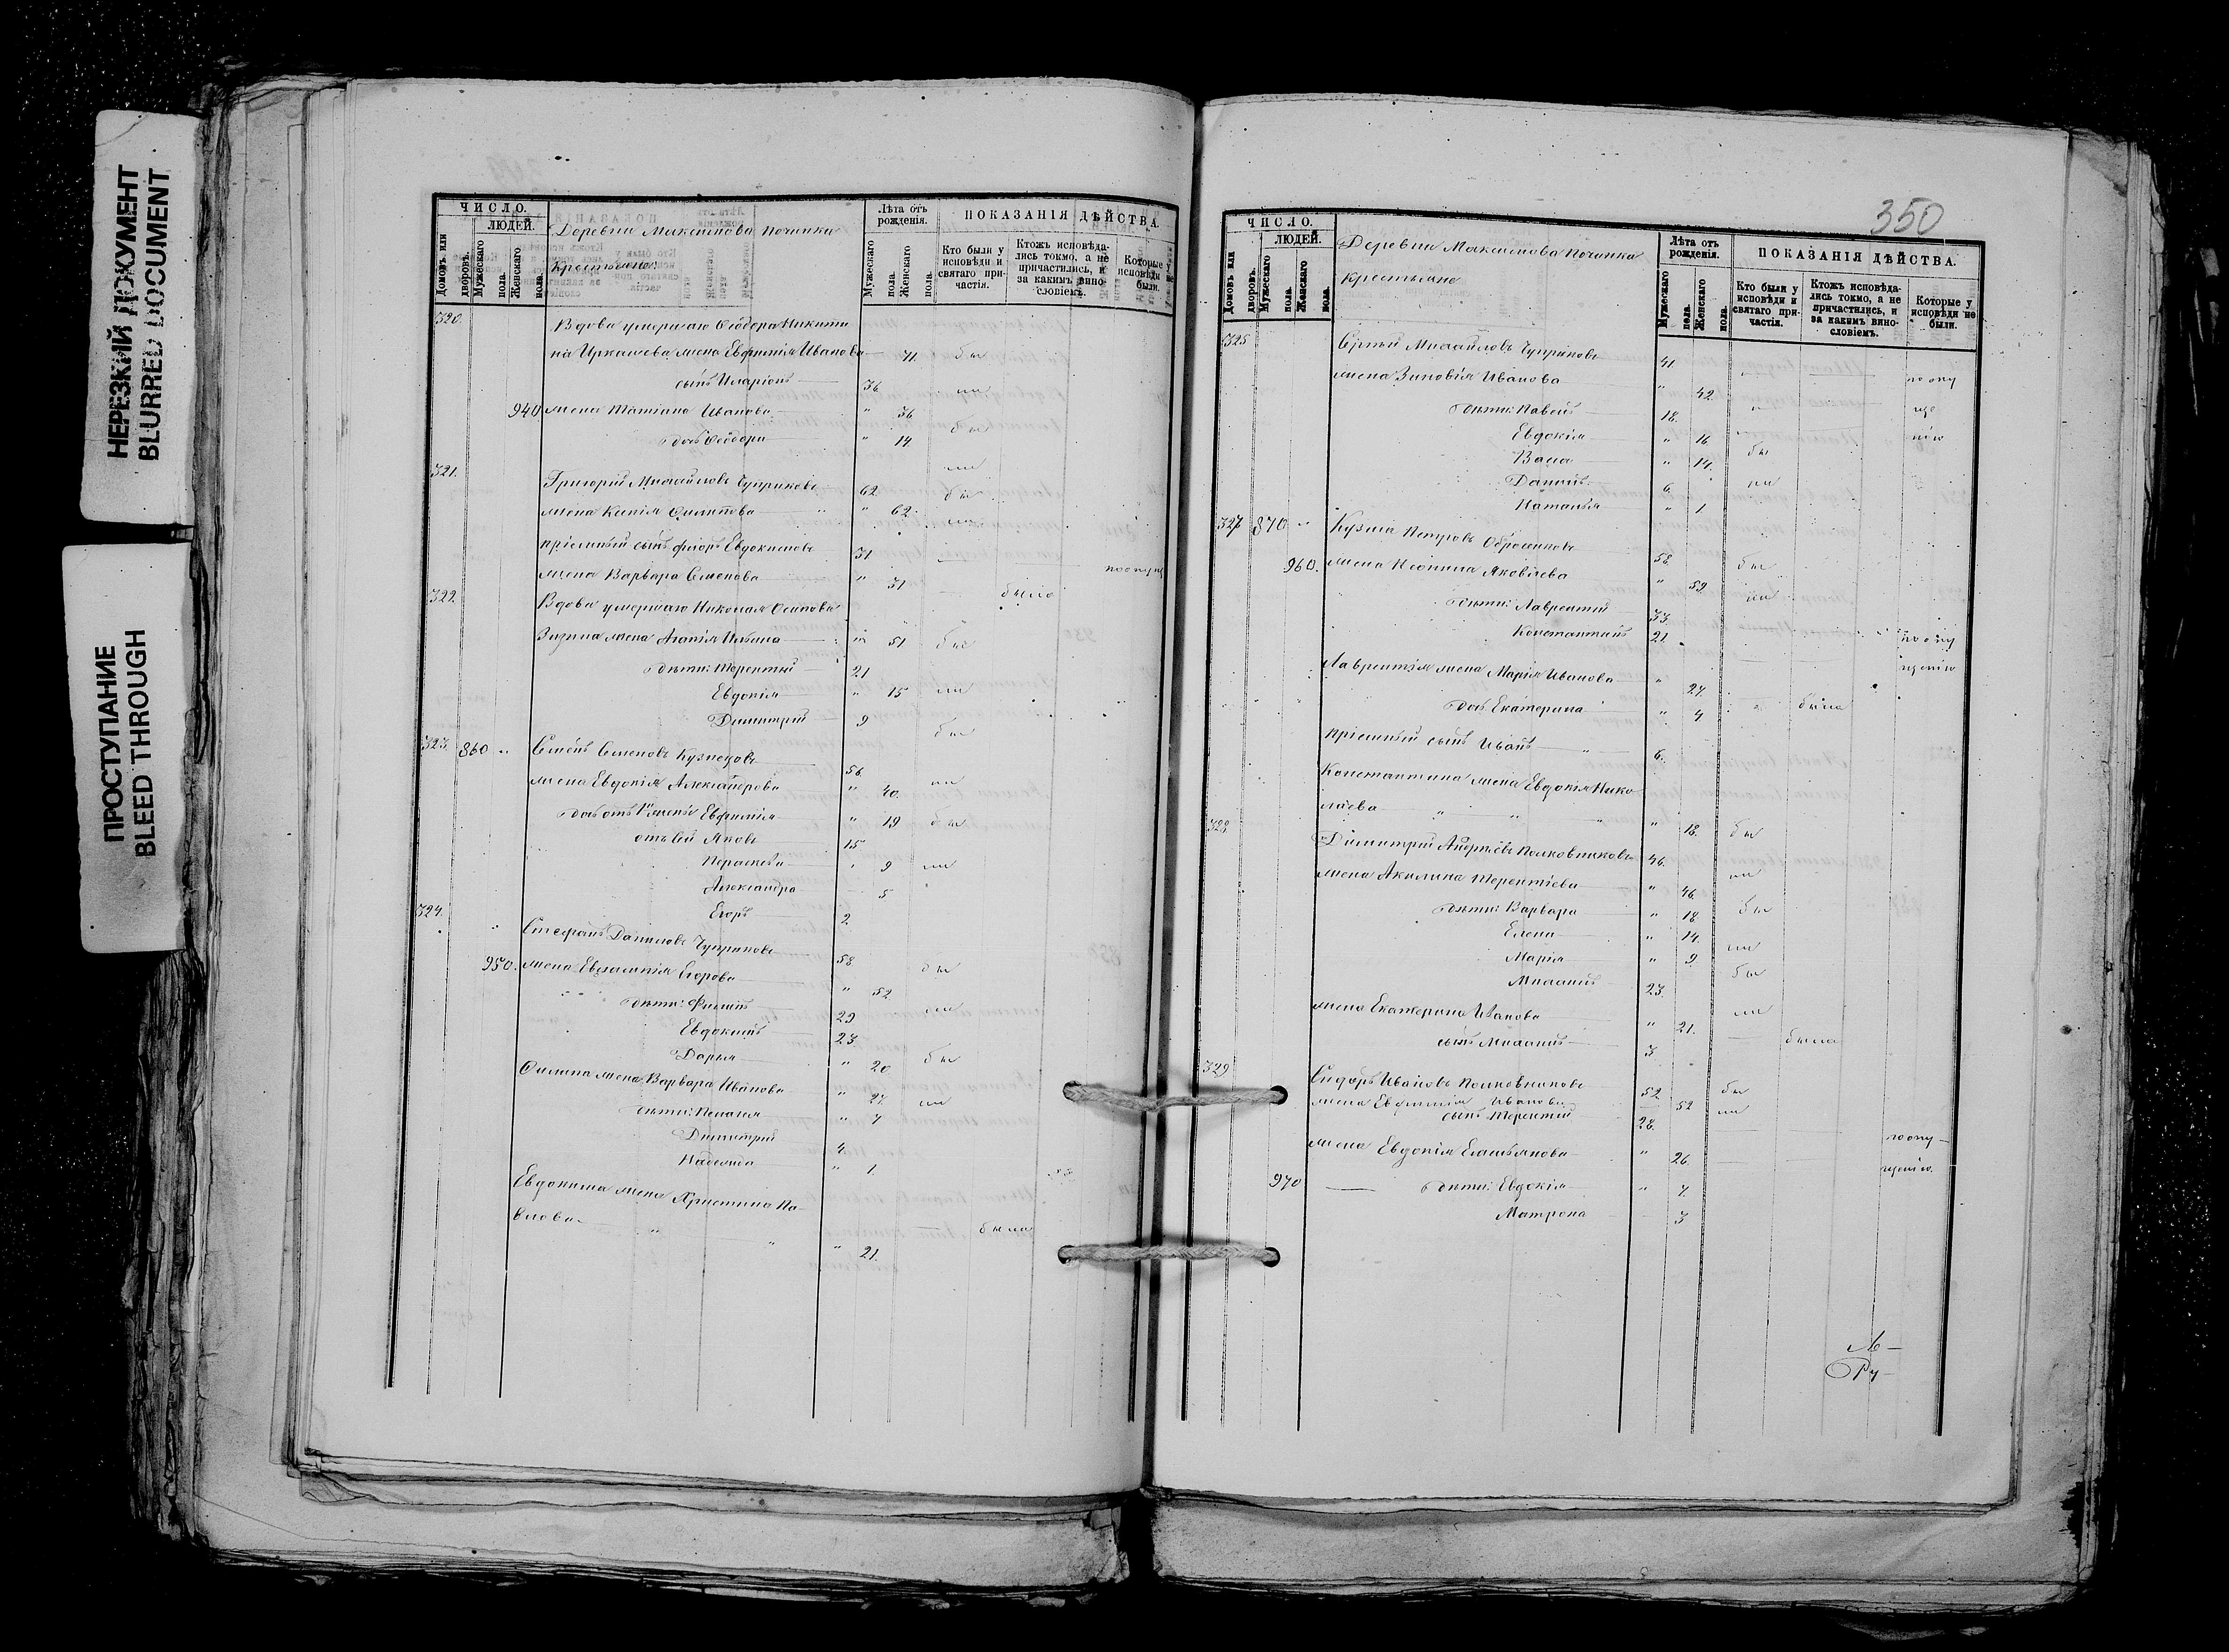 НЕРЕЗКИЙ ДОКУМЕНТ
BLURRED DOCUMENT
ПРОСТУПАНИЕ
BLEED THROUGH
ЧИСЛО.
ЛЮДЕЙ.
Домовъ или дворовъ.
Мужескаго пола.
Женскаго пола.
Деревни Максимова Починка
крестьяне:
Лѣта отъ рожденія.
Мужескаго пола.
Женскаго пола.
ПОКАЗАНІЯ ДѢЙСТВА.
Кто были у исповѣди и святаго причастія.
Ктожъ исповѣдались токмо, а не причастились, и за какимъ винословіемъ.
Которые у исповѣди не были.
320. Вдова умершаго Ѳеодора Никити
на жена Евфимія Иванова 71. бы
сынъ Иларіонъ 36 ли
940 жена Татіана Иванова " 36 бы
дочь Ѳеодора " 14 ли
321. Григорій Михайловъ Чуприковъ 62 бы
жена Филипова " 62 ли
пріемный сынъ Евдокимовъ 31
жена Варвара Семенова " 31 была
322. Вдова умершаго Николая Осипова
жена Агапія Ильина " 51 бы
дѣти: Терентій 21
Евдокія " 15 ли
Димитрій 9 бы
323. 860 " Семенъ Семеновъ Кузнецовъ 56
жена Евдокія Александрова " 40. ли
дочь отъ 1й жены Евфимія " 19 бы
отъ сей Яковъ 15
Пораскева " 9 ли
Александра 5
Егоръ 2
324. Стефанъ Даниловъ Чуприковъ 58
950. жена Егорова " 52 бы
дѣти: Филипъ 29 ли
Евдокимъ 23
Дарья " 20 бы
Филипа жена Варвара Иванова " 27 ли
дѣти: Пелагея " 7
Димитрій 4
Надежда " 1
Евдокима жена Христина Па-
влова " " " 21. была
350
ЧИСЛО.
ЛЮДЕЙ.
Домовъ или дворовъ.
Мужескаго пола.
Женскаго пола.
Деревни Максимова Починка
крестьяне
Лѣта отъ рожденія.
Мужескаго пола.
Женскаго пола.
ПОКАЗАНІЯ ДѢЙСТВА.
Кто были у исповѣди и святаго причастія.
Ктожъ исповѣдались токмо, а не причастились, и за какимъ винословіемъ.
Которые у исповѣди не были.
325 Сергѣй Михайловъ Чуприковъ 41
жена Зиновія Иванова " 42. по опу
дѣти: Павелъ 18. ще
Евдокія " 16 нію
Васса " 14. бы
Даніилъ 6. ли
Наталья " 1
327 870 " Кузма Петровъ 58
960. жена Яковлева " 52 бы
дѣти: Лаврентій 33 ли
Константинъ 21. по опу
Лаврентія жена Марія Иванова " 27. щенію
дочь Екатерина " 4 была
пріемный сынъ Иванъ 6.
Константина жена Евдокія Нико
лаева " " " " 18. бы
328. Димитрій Андреевъ Полковниковъ 46. ли
жена Акилина Терентіева " 46
дѣти: Варвара " 18. бы
Елена " 14. ли
Марія " 9.
Михаилъ 23. бы
жена Екатерина Иванова " 21. ли
сынъ Михаилъ 3 была
329 Сидоръ Ивановъ Полковниковъ 52 бы
жена Евфимія Иванова 52 ли
сынъ Терентій 28. по опу-
жена Евдокія Емельянова " 26. щенію.
970 дѣти: Евдокія " 7.
Матрона 3